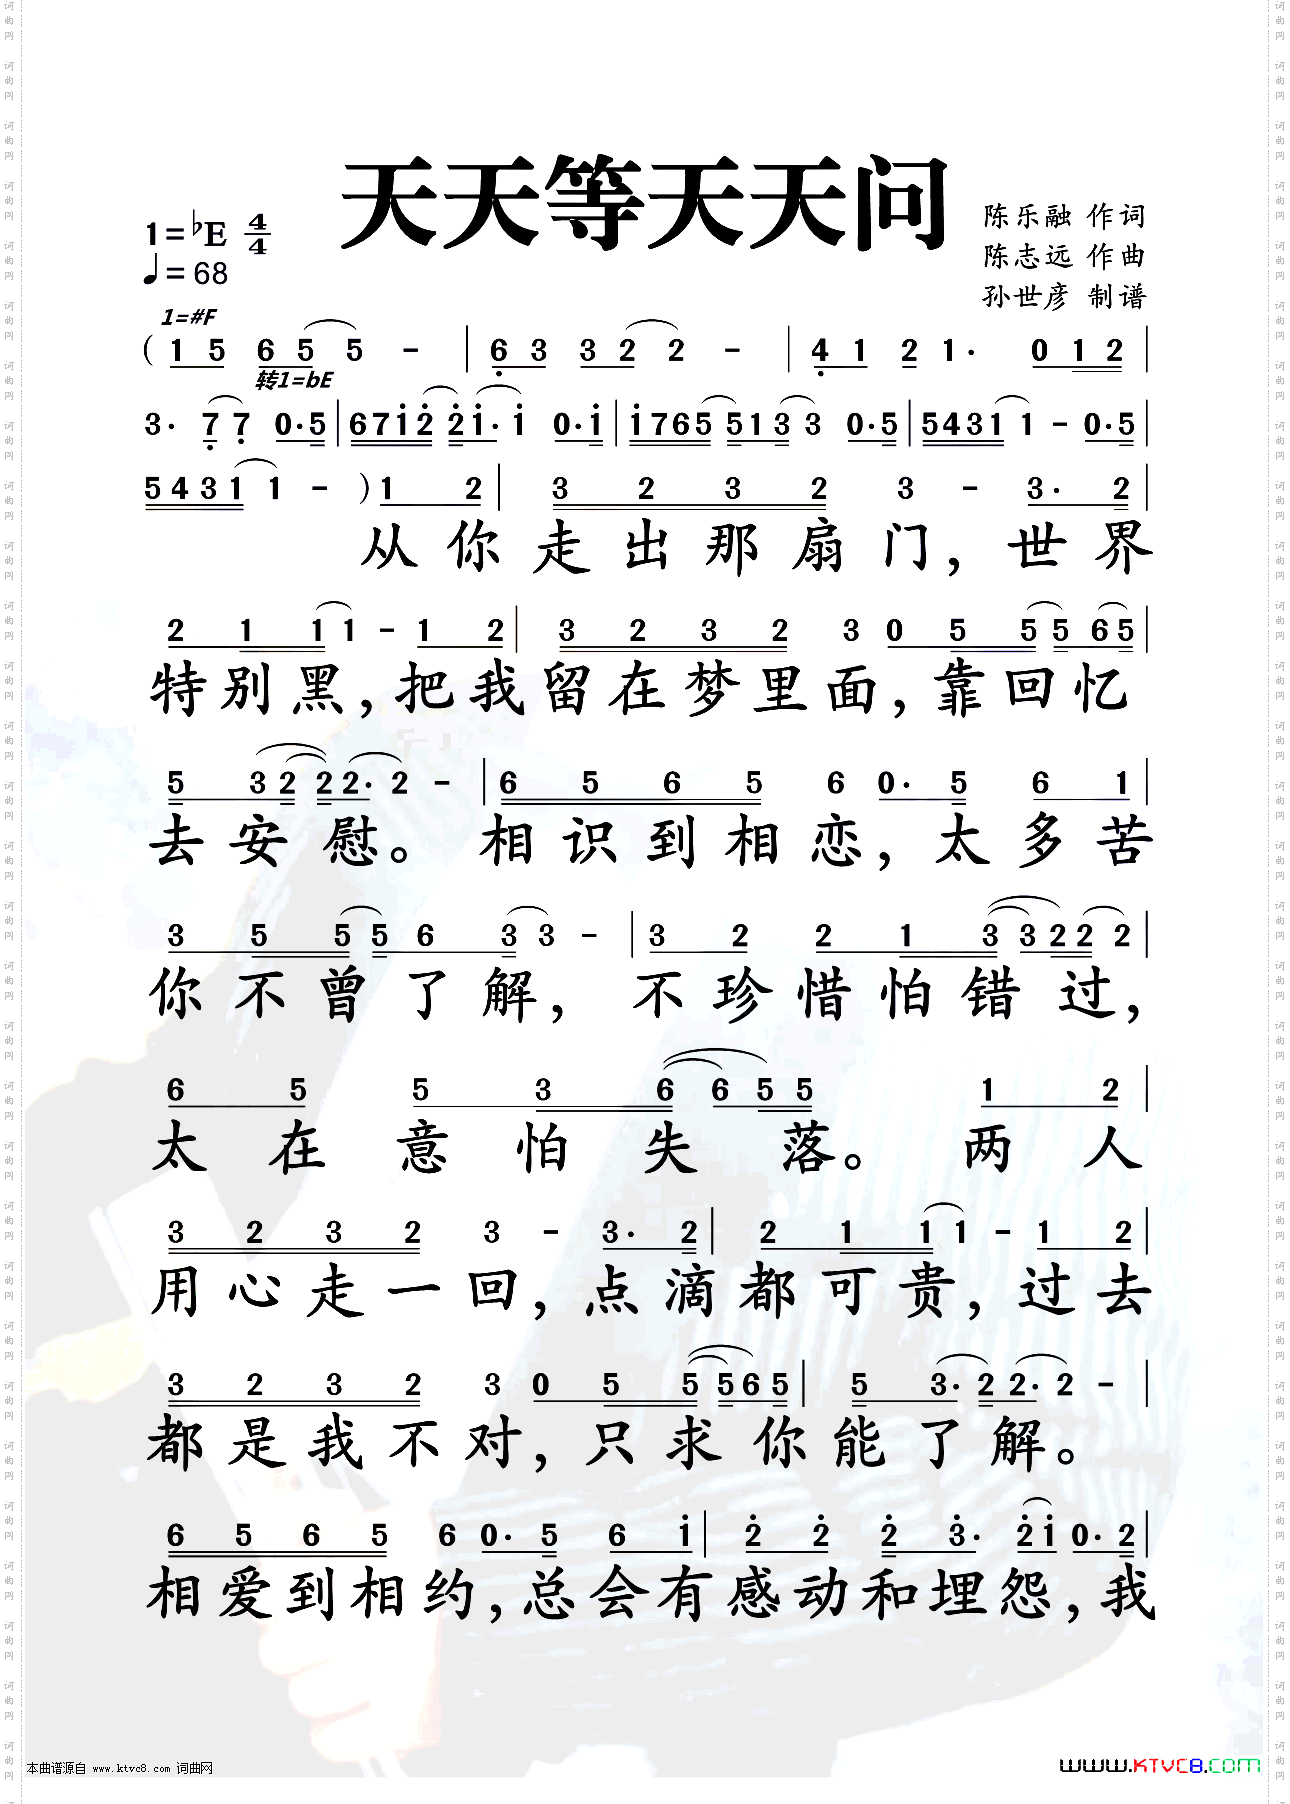 天天等天天问
1=♭E 4/4
♩=68
陈乐融 作词
陈志远 作曲
孙世彦 制谱
1=#F
( 1 5 6 5 5 - | 6 3 3 2 2 - | 4 1 2 1· 0 1 2 |
转1=bE
3· 7 7 0·5 | 6 7 1 2 2 1· 1 0·1 | 1 7 6 5 5 1 3 3 0·5 | 5 4 3 1 1 - 0·5 |
5 4 3 1 1 - ) 1 2 | 3 2 3 2 3 - 3· 2 |
从你走出那扇门，世界
2 1 1 1 - 1 2 | 3 2 3 2 3 0 5 5 5 6 5 |
特别黑，把我留在梦里面，靠回忆
5 3 2 2 2· 2 - | 6 5 6 5 6 0· 5 6 1 |
去安慰。相识到相恋，太多苦
3 5 5 5 6 3 3 - | 3 2 2 1 3 3 2 2 2 |
你不曾了解，不珍惜怕错过，
6 5 5 3 6 6 5 5 1 2 |
太在意怕失落。两人
3 2 3 2 3 - 3· 2 | 2 1 1 1 - 1 2 |
用心走一回，点滴都可贵，过去
3 2 3 2 3 0 5 5 5 6 5 | 5 3· 2 2· 2 - |
都是我不对，只求你能了解。
6 5 6 5 6 0· 5 6 1 | 2 2 2 3· 2 1 0· 2 |
相爱到相约，总会有感动和埋怨，我
本曲谱源自 www.ktvc8.com 词曲网
www.KTVC8.COM